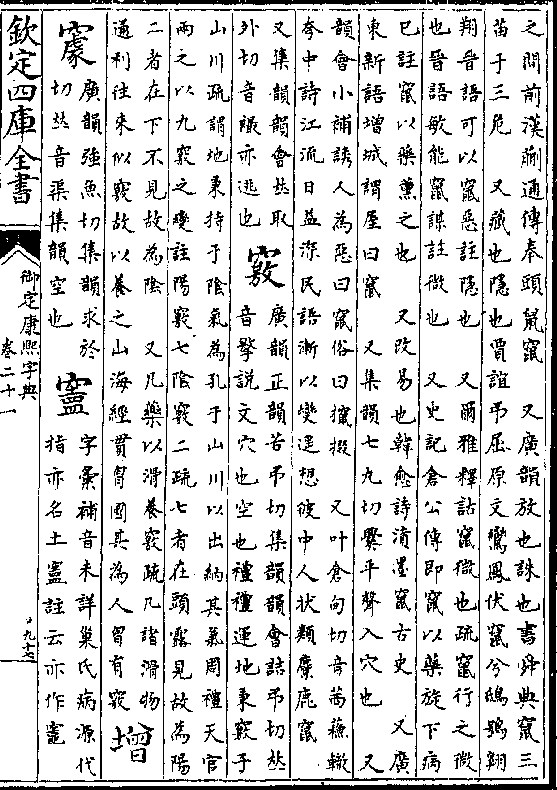 之間前漢蒯通傳奉頭鼠竄　又廣韻放也誅也書舜典竄三
苗于三危　又藏也隱也賈誼弔屈原文鸞鳳伏竄兮鴟鴞翱
翔晉語可以竄惡註隱也　又爾雅釋詁竄微也疏竄行之微
也晉語敏能竄謀註微也　又史記倉公傳即竄以藥旋下病
已註竄以藥薰之也　又改易也韓愈詩濆墨竄古史　又廣
東新語增城謂屋曰竄　又集韻七九切爨平聲入穴也　又
韻會小補誘人為惡曰竄俗曰攛掇　又叶倉旬切音茜蘇轍
夔中詩江流日益深民語漸以變遥想彼中人狀類麋鹿竄
又集韻韻會𠀤取
外切音襊亦逃也
竅
廣韻正韻苦弔切集韻韻會詰弔切𠀤
音擊說文穴也空也禮禮運地秉竅于
山川疏謂地秉持于陰氣為孔于山川以出納其氣周禮天官
兩之以九竅之變註陽竅七陰竅二疏七者在頭露見故為陽
二者在下不見故為陰　又凡藥以滑養竅疏凡諸滑物
通利往來似竅故以養之山海經貫胷國其為人胷有竅
增
䆽
廣韻強魚切集韻求於
切𠀤音渠集韻空也
字彙補音未詳巢氏病源代
指亦名土䆿註云亦作竈
欽定四庫全書
御定康熙字典
卷二十一
九十七